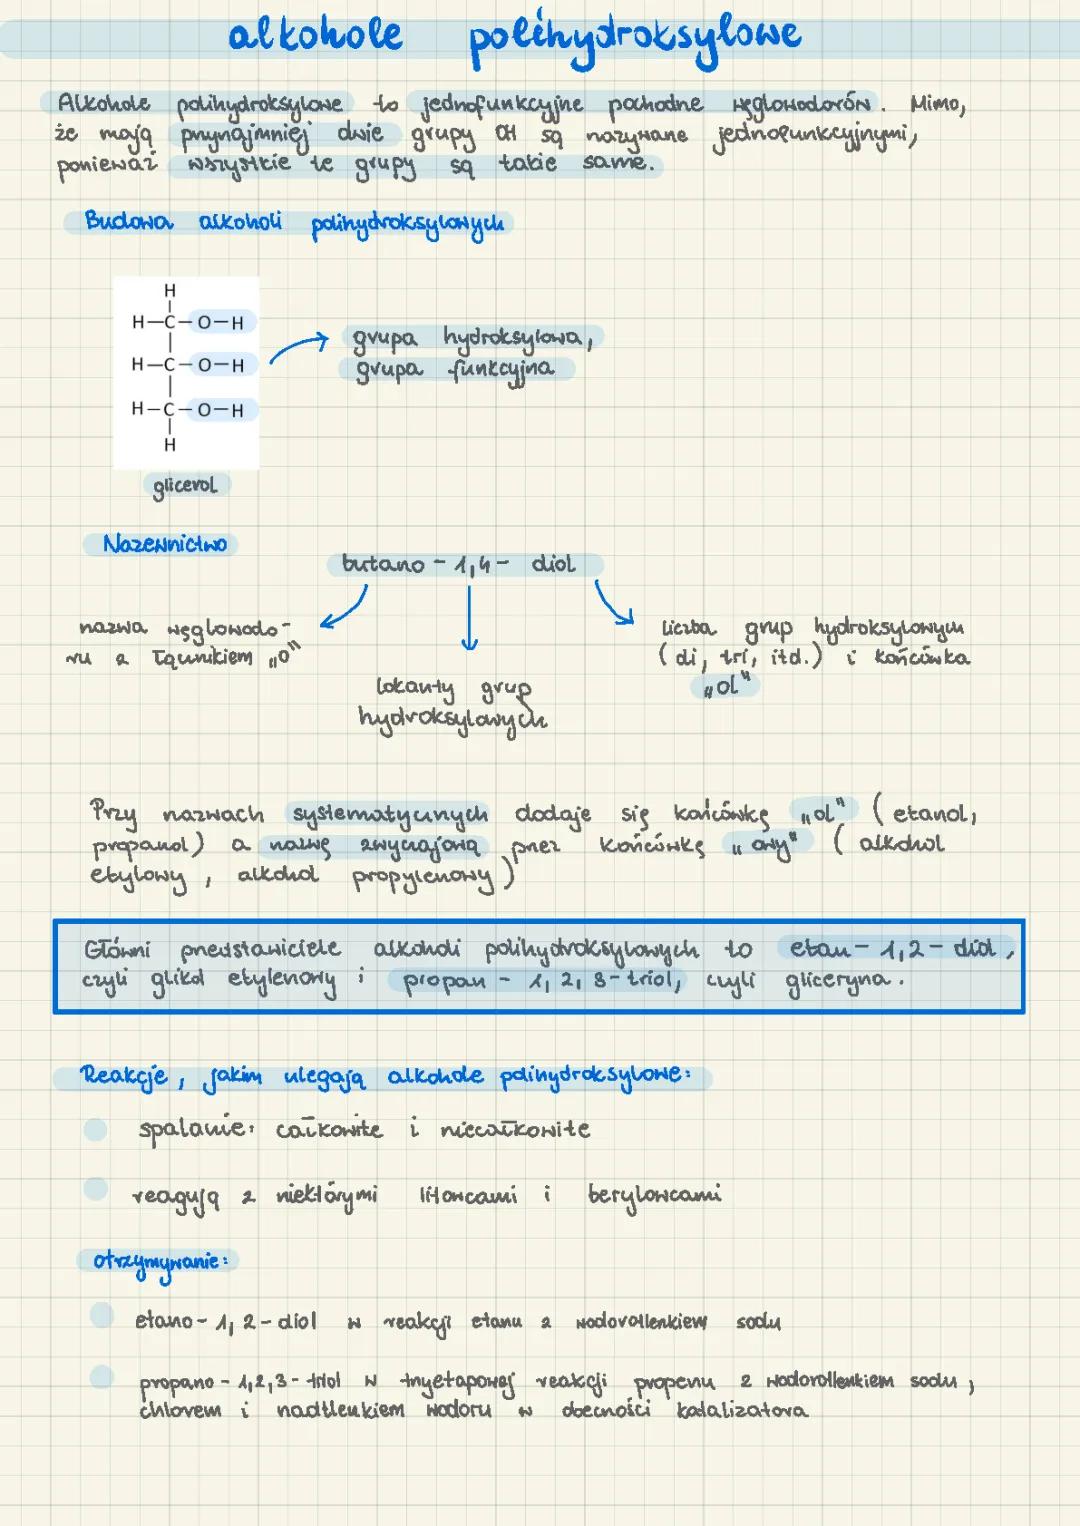 alkohole polihydroksylowe
Alkohole polihydroksylowe to jednofunkcyjne pochodne węglowodorów. Mimo,
że mają przynajmniej dwie grupy OH są nazywane jednofunkcyjnymi,
ponieważ wszystkie te grupy są takie same.
Budowa alkoholi polihydroksylowych
H
H-C-O-H
H-C-O-H
H-C-O-H
H
grupa hydroksylowa,
grupa funkcyjna
glicerol
Nazewnictwo
butano - 1,4 - diol
nazwa węglowodo-
ru z łącznikiem „o"
lokanty grup
hydroksylowych
liczba grup hydroksylowych
(di, tri, itd.) i końcówka
„ol"
Przy nazwach systematycznych dodaje się końcówkę „ol" (etanol,
propanol) a nazwę zwyczajową przez końcówkę „owy" (alkohol
etylowy, alkohol propylenowy)
Główni przedstawiciele alkoholi polihydroksylowych to etan - 1,2 - diol,
czyli glikol etylenowy i propan - 1, 2, 3 - triol, czyli gliceryna.
Reakcje, jakim ulegają alkohole polihydroksylowe:
spalanie: całkowite i niecałkowite
reagują z niektórymi litowcami i berylowcami
otrzymywanie:
etano - 1, 2 - diol w reakcji etanu z wodorotlenkiem sodu
propano - 1,2,3 - triol w trzyetapowej reakcji propenu z wodorotlenkiem sodu,
chlorem i nadtlenkiem wodoru w obecności katalizatora